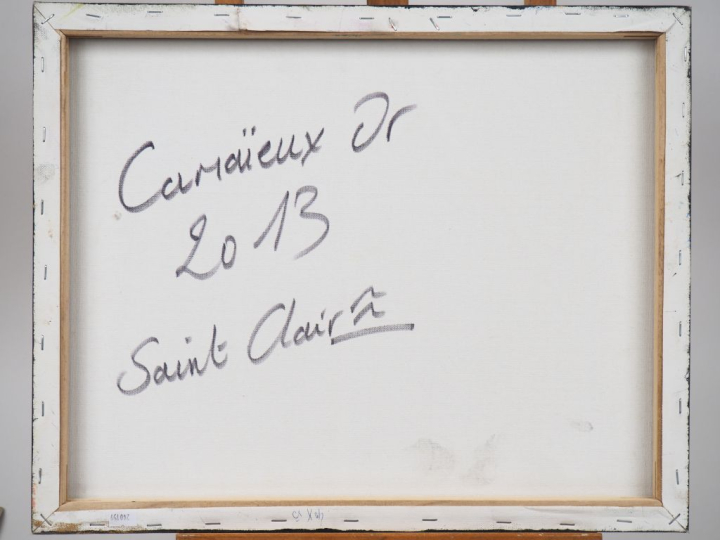 Camaïeux Or
2013
Saint Clair